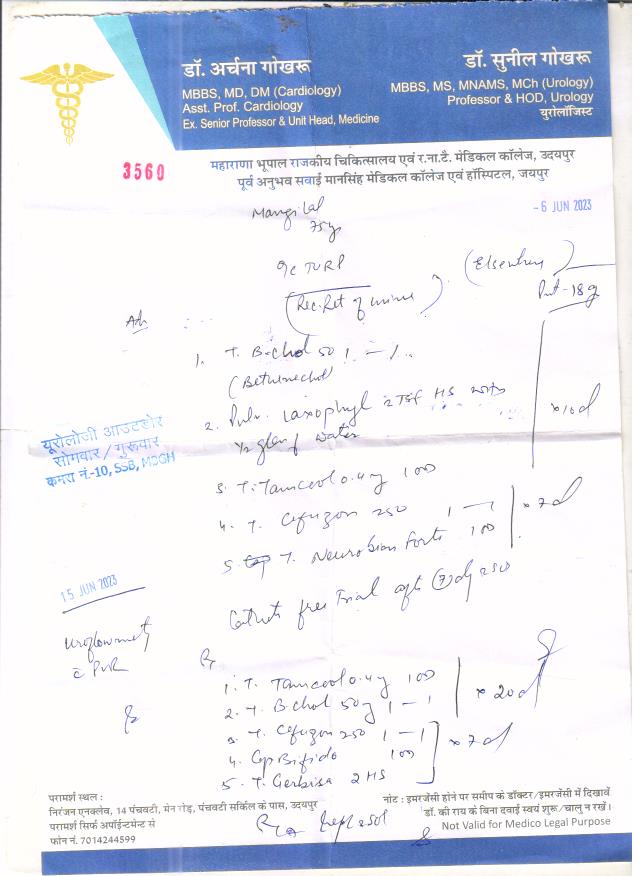 डॉ. अर्चना गोखरू
MBBS, MD, DM (Cardiology)
Asst. Prof. Cardiology
Ex. Senior Professor & Unit Head, Medicine
डॉ. सुनील गोखरू
MBBS, MS, MNAMS, MCh (Urology)
Professor & HOD, Urology
यूरोलॉजिस्ट
महाराणा भूपाल राजकीय चिकित्सालय एवं र.ना.टै. मेडिकल कॉलेज, उदयपुर
पूर्व अनुभव सवाई मानसिंह मेडिकल कॉलेज एवं हॉस्पिटल, जयपुर
3560
- 6 JUN 2023
Mangilal
75y
TURP
(Rec. Ret of urine)
Adv
1. T. B-chol 50 1 - 1
(Bethanechol)
2. Pulv. Laxophyl 2 TSF HS with
1/2 glass of water
x 10d
3. T. Tamceol 0.4 100
4. T. Cefuzon 250 1 - 1
x 7d
5. T. Neurobion Forte 100
यूरोलॉजी आउटडोर
सोमवार / गुरूवार
कमरा नं.-10, SSB, MBGH
free Trial after 7 day
15 JUN 2023
Uroflowmetry
c PVR
Rx
1. T. Tamceol 0.4 100
2. T. B-chol 50 1 - 1
x 20d
3. T. Cefuzon 250 1 - 1
4. Cap Bifido 100
x 7d
5. T. Gerbisa 2 HS
परामर्श स्थल :
निरंजन एनक्लेव, 14 पंचवटी, मेन रोड, पंचवटी सर्किल के पास, उदयपुर
परामर्श सिर्फ अपॉईन्टमेन्ट से
फोन नं. 7014244599
नोट : इमरजेंसी होने पर समीप के डॉक्टर/इमरजेंसी में दिखावें
डॉ. की राय के बिना दवाई स्वयं शुरू/चालु न रखें।
Not Valid for Medico Legal Purpose